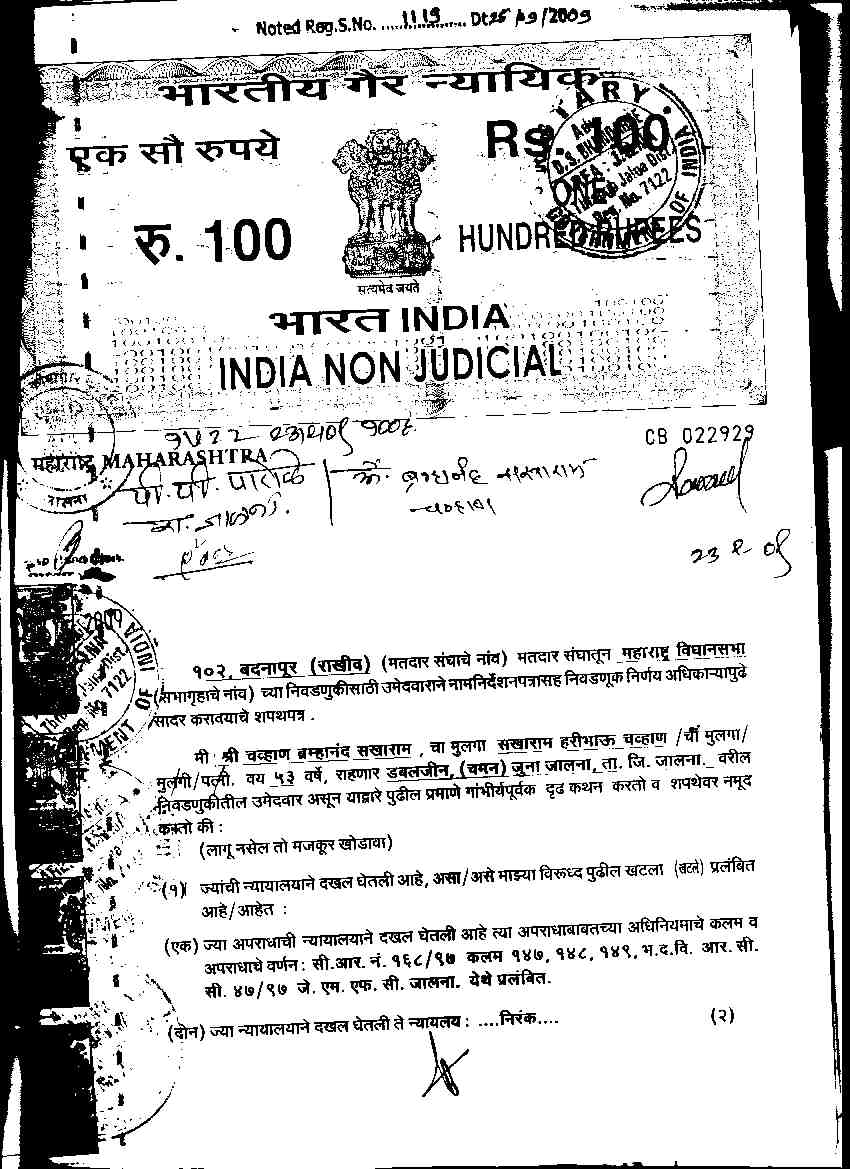 Noted Reg.S.No. .....1119............... Dt 25/09/2009
भारतीय गैर न्यायिक
एक सौ रुपये
Rs. 100
रु. 100
ONE
HUNDRED RUPEES
सत्यमेव जयते
भारत INDIA
INDIA NON JUDICIAL
NOTARY
D.S.
Jalna Dist.
Reg. No. 7122
GOVERNMENT OF INDIA
CB 022929
महाराष्ट्र MAHARASHTRA
जालना
पी.पी. पारोळे
सखाराम
चव्हाण
23
१०२, बदनापूर (राखीव) (मतदार संघाचे नांव) मतदार संघातून महाराष्ट्र विधानसभा
(सभागृहाचे नांव) च्या निवडणुकीसाठी उमेदवाराने नामनिर्देशनपत्रासह निवडणूक निर्णय अधिकाऱ्यापुढे
सादर करावयाचे शपथपत्र .
मी श्री चव्हाण ब्रम्हानंद सखाराम , चा मुलगा सखाराम हरीभाऊ चव्हाण /ची मुलगा/
मुलगी/पत्नी. वय ५३ वर्षे, राहणार डबलजीन, (चमन) जुना जालना, ता. जि. जालना. वरील
निवडणुकीतील उमेदवार असून याद्वारे पुढील प्रमाणे गांभीर्यपूर्वक दृढ कथन करतो व शपथेवर नमूद
करतो की :
(लागू नसेल तो मजकूर खोडावा)
(१) ज्यांची न्यायालयाने दखल घेतली आहे, असा/असे माझ्या विरुध्द पुढील खटला (खटले) प्रलंबित
आहे/आहेत :
(एक) ज्या अपराधाची न्यायालयाने दखल घेतली आहे त्या अपराधाबाबतच्या अधिनियमाचे कलम व
अपराधाचे वर्णन: सी.आर. नं. १६८/९७ कलम १४७, १४८, १४९, भ.द.वि. आर. सी.
सी. ४७/९७ जे. एम. एफ. सी. जालना. येथे प्रलंबित.
(दोन) ज्या न्यायालयाने दखल घेतली ते न्यायलय : ....निरंक.... (२)